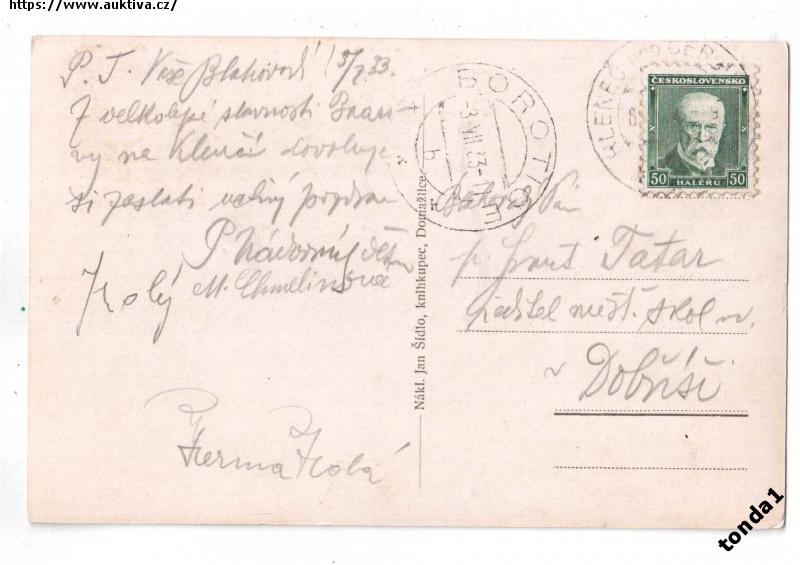 https://www.auktiva.cz/
P. T. Vaše Blahorodí! 5/7 33.
Z velkolepé slavnosti Baaro-
vy na Klenčí dovoluje
si zaslati uctivý pozdrav
M. Chmelinová
Herma
Nákl. Jan Šídlo, knihkupec, Domažlice.
BOROTICE
-3.VII.33-
b
KLENEČ POD ČERCH
ČESKOSLOVENSKO
50 HALÉRU 50
Pán
Tatar
ředitel měšť. škol
v Dobříši
tonda1